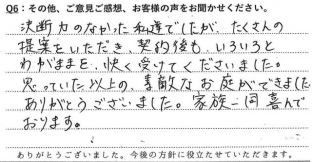 Q6：その他、ご意見ご感想、お客様の声をお聞かせください。
決断力のなかった私達でしたが、たくさんの
提案をいただき、契約後も、いろいろと
わがままを、快く受けてくださいました。
思っていた以上の、素敵なお庭ができました
ありがとうございました。家族一同喜んで
おります。
ありがとうございました。今後の方針に役立たせていただきます。